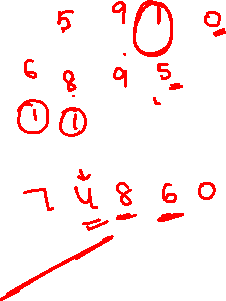 5 9 1 0
6 8 9 5
1 1
7 4 8 6 0